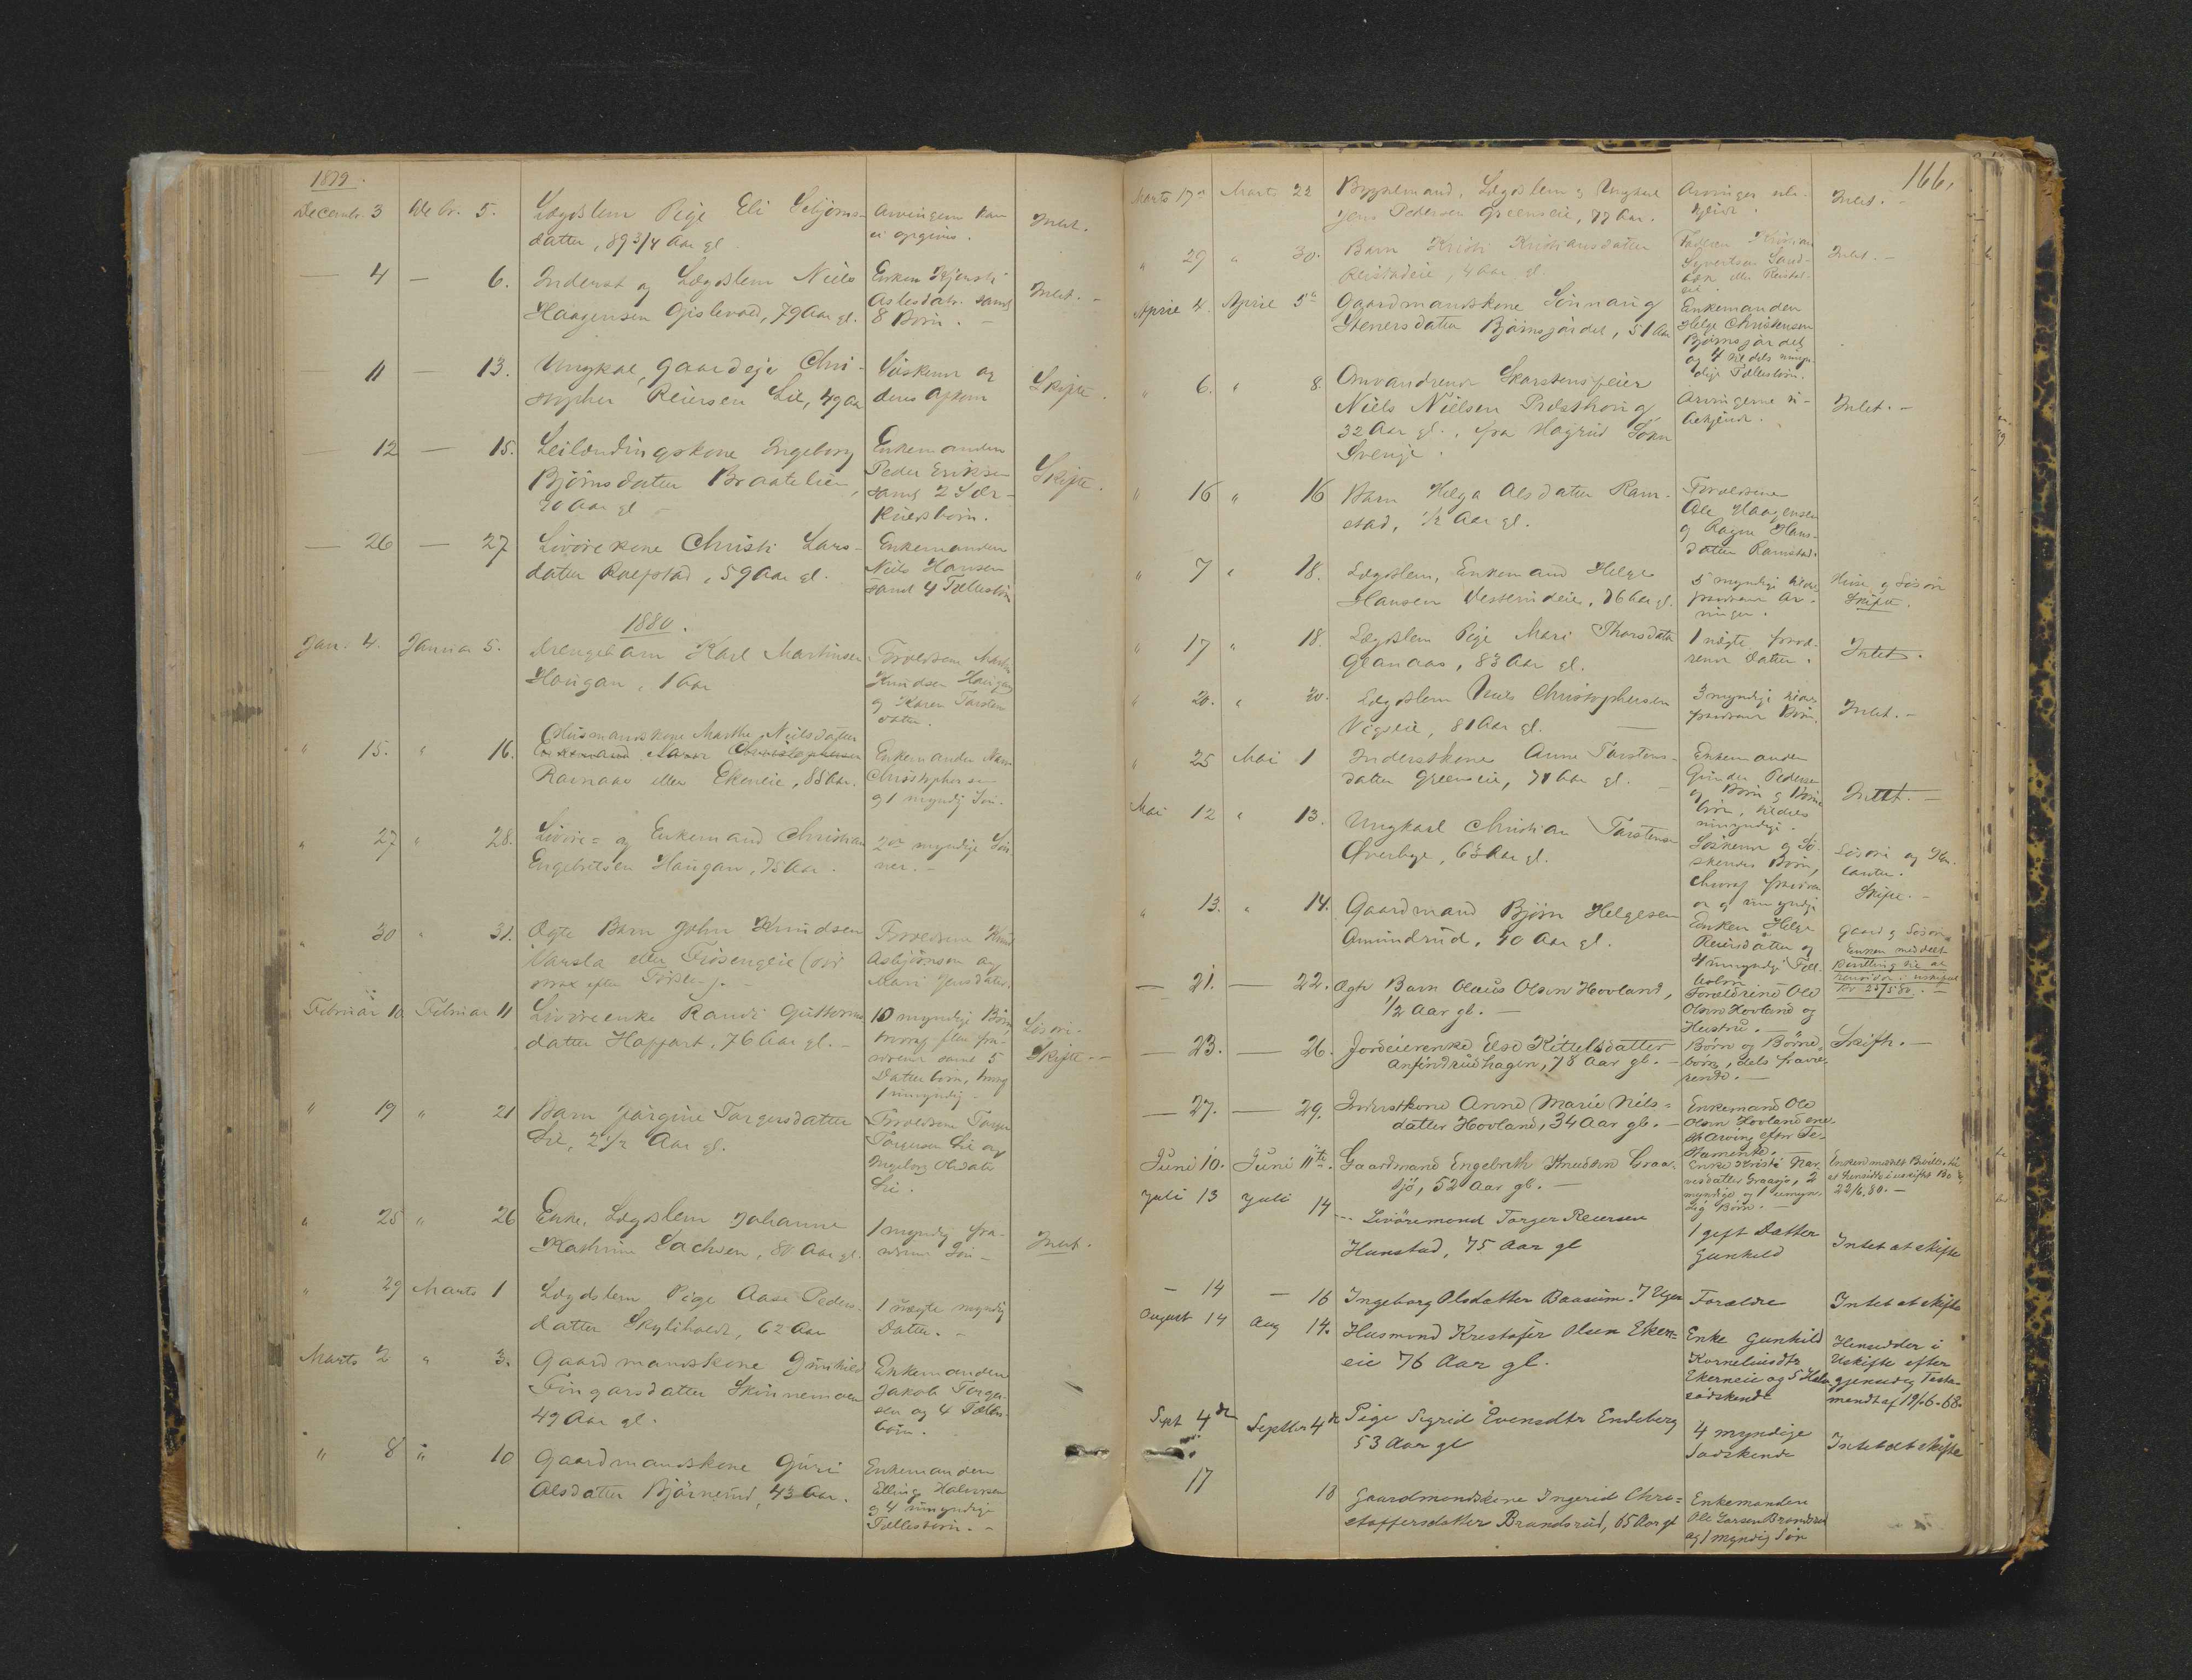 1879.
Decembr. 3 Decbr. 5. Lægdslem Pige Eli
datter, 89 3/4 Aar gl.
Arvingerne kan
ei opgives.
Intet.
— 4 — 6. Inderst og Lægdslem Niels
Haagensen Gislevold, 79 Aar gl.
Enken
Aslesdatr. samt
8 Børn. —
Intet. -
11 — 13. Ungkal, Gaardejer Chri-
stopher Reiersen Lie, 49 Aar
Søskende og
deres Afkom
Skifte.
— 12 — 15. Leilændingskone Ingeborg
Bjørnsdatter Braatelien,
70 Aar gl -
Enkemanden
Peder Eriksen
samt 2 Sær-
kuldsbørn.
Skifte.
— 26 — 27 Livørekone Christi Lars-
datter Rolfstad, 59 Aar gl.
Enkemanden
Niels Hansen
samt 4 Fællesbørn
1880.
Jan. 4. Januar 5. Drengebarn Karl Martinsen
Haugan, 1 Aar
Forældrene Martin
Knudsen Haugan
og Karen Torstens
datter.
" 15. " 16. Husmandskone Marthe Nielsdatter
Ramaas eller Ekereie, 85 Aar.
Enkemanden
Christophersen
og 1 myndig Søn.
" 27 " 28. Livøre- og Enkemand Christian
Engebretsen Haugan, 75 Aar.
2de myndige Søn
ner. -
" 30 " 31. Ægte Barn John Knudsen
Varsla eller
Forældrene Knud
Asbjørnsen og
Mari Jensdatter.
Februar 10 Februar 11 Livøreenke Randi Guttorms
datter Hoffart, 76 Aar gl. -
10 myndige Børn
hvoraf flere fra-
værende samt 5
Datterbørn, hvoraf
1 umyndig -
Løsøre.
Skifte -
" 19 " 21 Barn Jørgine Torgersdatter
Lie, 2 1/2 Aar gl.
Forældrene Torger
Torgersen Lie og
Ingeborg Olsdatter
Lie.
" 25 " 26 Enke, Lægdslem Johanne
Kathrine Sachsen, 80 Aar gl.
1 myndig fra-
værende Søn -
Intet.
" 29 Marts 1 Lægdslem Pige Aase Peders-
datter 62 Aar
1 uægte myndig
Datter. -
Marts 2 " 3. Gaardmandskone Gunhild
Fingarsdatter Skinnemoen
49 Aar gl.
Enkemanden
Jakob Torger-
sen og 4 Fælles-
børn.
" 8 " 10 Gaardmandskone Guri
Olsdatter Bjørnerud, 43 Aar.
Enkemanden
Elling Halvorsen
og 4 umyndige
Fællesbørn. -
166,
Marts 17de Marts 22 Bygselmand, Lægdslem og Ungkarl
Jens Pedersen Greenseie, 77 Aar.
Arvinger ube-
kjendt.
Intet. -
" 29 " 30. Barn Kristi Kristiansdatter
4 Aar gl.
Faderen Kristian
Syvertsen Sand-
eie.
Intet. -
April 4. April 5te Gaardmandskone Sønnaug
Stenersdatter Bjørnsjordet, 51 Aar
Enkemanden
Helge Christensen
Bjørnsjordet
og 4 tildels umyn-
dige Fællesbørn.
" 6. " 8. Omvandrende Skorstensfeier
Niels Nielsen
32 Aar gl., fra Søkn
Sverige.
Arvingerne u-
bekjendt.
Intet. -
" 16 " 16 Barn Helga Olsdatter Ram-
stad, 1/2 Aar gl.
Forældrene
Ole Haagensen
og Ragne Hans-
datter Ramstad.
" 7 " 18. Lægdslem, Enkemand Helge
Hansen 76 Aar gl.
5 myndige tildels
fraværende Ar-
vinger.
Huse og Løsøre
Skifte.
" 17 " 18. Lægdslem Pige Mari Thorsdatter
Glanaas, 83 Aar gl.
1 uægte fravæ-
rende Datter.
Intet.
" 20. " 20. Lægdslem Niels Christophersen
81 Aar gl.
3 myndige tildels
fraværende Børn.
Intet. -
" 25 Mai 1 Inderstkone Anne Torstens-
datter Greenseie, 71 Aar gl.
Enkemanden
Gunder Pedersen
og Børn og Børne
børn, tildels
umyndige.
Intet. -
Mai 12 " 13. Ungkarl Christian Torstensen
Øverbye, 63 Aar gl.
Søskende og Sø-
skendes Børn,
hvoraf fraværen
de og umyndige
Løsøre og Kon-
tanter.
Skifte. -
" 13. " 14. Gaardmand Bjørn Helgesen
Amundrud, 40 Aar gl.
Enken Helge
Reiersdatter og
4 umyndige Fæl-
lesbørn
Gaard og Løsøre.
Enken meddelt
Bevilling til at
hensidde i uskiftet
Bo 22/5 80. -
— 21. — 22. Ægte Barn Olaus Olsen Hovland,
1/2 Aar gl. —
Forældrene Ole
Olsen Hovland og
Hustru. -
— 23. — 26. Jordeierenke Else Kittelsdatter
Anfindrudhagen, 78 Aar gl. -
Børn og Børne-
børn, dels fravæ-
rende. -
Skifte. -
— 27. — 29. Inderstkone Anne Marie Nils-
datter Hovland, 34 Aar gl. -
Enkemand Ole
Olsen Hovland ene-
ste Arving efter Te-
stamente.
Juni 10. Juni 11te. Gaardmand Engebreth Knudsen Graa-
sjø, 52 Aar gl. —
Enke Kristi Nar-
vesdatter Graasjø, 2
myndige og 1 umyn-
dig Børn. -
Enken meddelt Bevill. til
at hensidde i uskiftet Bo
22/6. 80. -
Juli 13 Juli 14 - Livøremand Torger Reiersen
Hunstad, 75 Aar gl
1 gift Datter
Gunhild
Intet at skifte
— 14 — 16 Ingeborg Olsdatter Baasum. 7 Uger
Forældre
Intet at skifte
August 14 Aug 14. Husmand Krestofer Olsen Eker=
eie 76 Aar gl.
Enke Gunhild
Korneliusdtr
Ekerneie og 5 Halv-
sødskende
Hensidder i
Uskifte efter
gjensidig Testa-
mendt af 19/6-68.
Sept 4de Septbr 4de Pige Sigrid Evensdtr Endeberg
53 Aar gl
4 myndige
Sødskende
Intet at skifte
17 18 Gaardmandskone Ingerid Chri=
stoffersdatter Brandsrud, 65 Aar gl
Enkemanden
Ole Larsen Brandsrud
og 1 myndig Søn